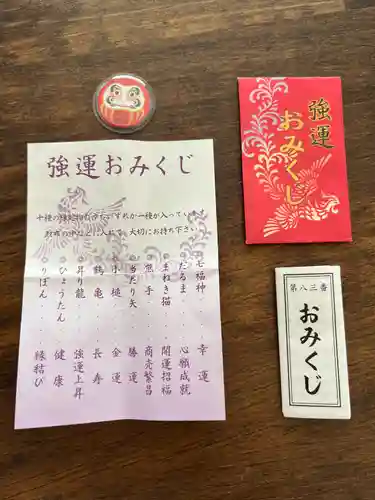 強運おみくじ
十種の縁起物のうちいずれか一種が入っています
財布の中などに入れて、大切にお持ち下さい
◎七福神・・・幸運
◎だるま・・・心願成就
◎まねき猫・・・開運招福
◎熊手・・・商売繁昌
◎当たり矢・・・勝運
◎小槌・・・金運
◎鶴亀・・・長寿
◎昇り龍・・・強運上昇
◎ひょうたん・・・健康
◎りぼん・・・縁結び
強運
おみくじ
第八三番
おみくじ